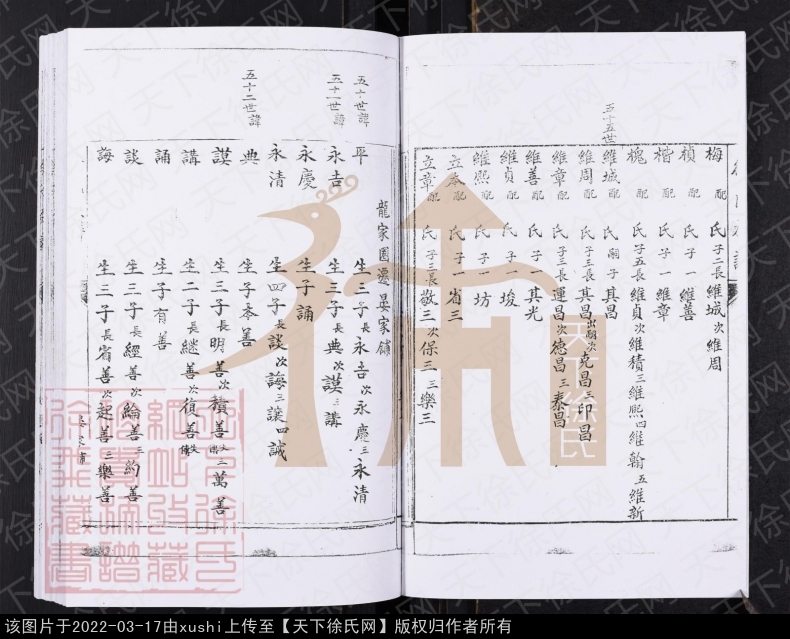 梅 配 氏 子二長維城次維周
楨 配 氏 子一維善
楷 配 氏 子一維章
槐 配 氏 子五長維貞次維積三維熙四維翰五維新
五十五世
維城 配 氏 嗣子其昌
維周 配 氏 子三長其昌出嗣次克昌三印昌
維章 配 氏 子三長運昌次德昌三泰昌
維善 配 氏 子一其光
維貞 配 氏 子一埈
維熙 配 氏 子一坊
立本 配 氏 子一省三
立章 配 氏 子三長敬三次保三三樂三
龍家園遷晏家鋪
五十世諱
平 生三子長永吉次永慶三永清
五十一世諱
永吉 生三子長典次謨三講
永慶 生子誦
永清 生四子長談次誨三讓四誠
五十二世諱
典 生子本善
謨 生三子長明善次積善三萬善
講 生二子長継善次復善
誦 生子有善
談 生三子長經善次綸善三約善
誨 生三子長富善次起善三樂善
天下徐氏
该图片于2022-03-17由xushi上传至【天下徐氏网】版权归作者所有